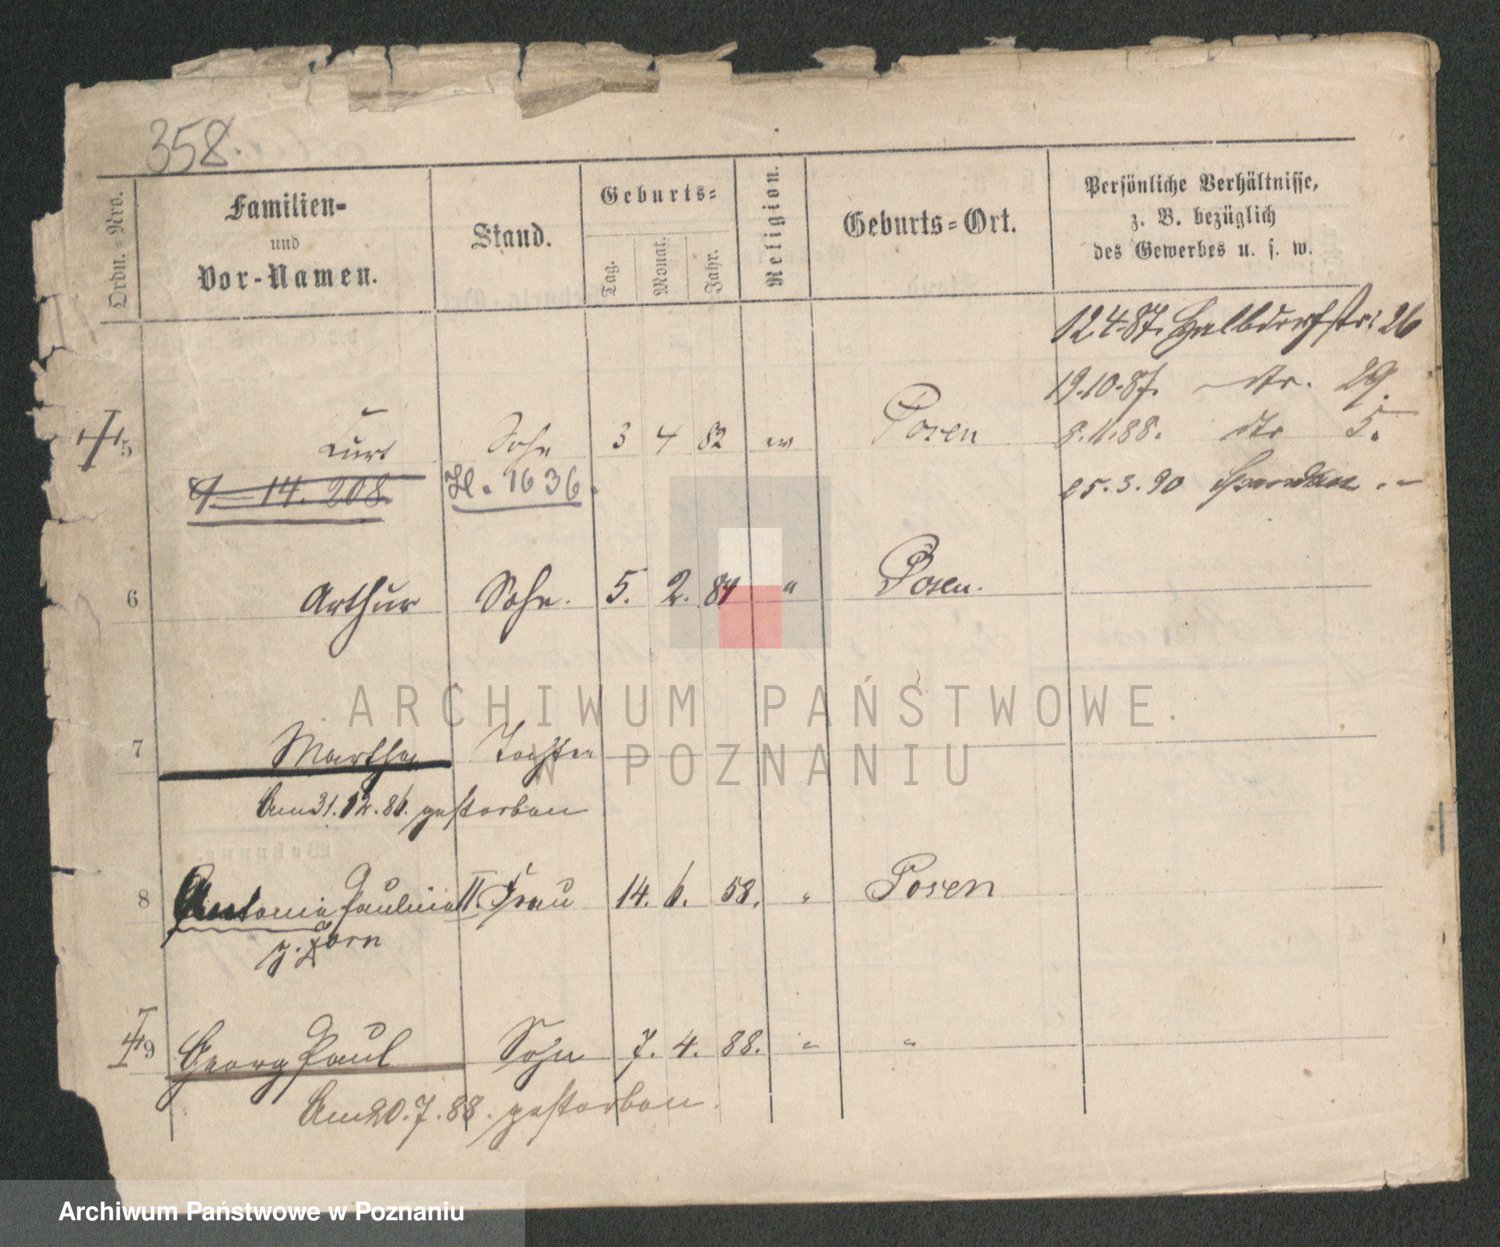 358.
Ordn.=Nro.
Familien=
und
Vor-Namen.
Stand.
Geburts=
Tag.
Monat.
Jahr.
Religion.
Geburts=Ort.
Persönliche Verhältnisse,
z. B. bezüglich
des Gewerbes u. s. w.
12.4.87. Halbdorfstr. 26
19.10.87. 29.
5 Curt Sohn 3 4 82 ev Posen 8.1.88. dto 5.
14.208. H. 1636. 25.3.90
6 Arthur Sohn. 5. 2. 84 " Posen.
7 Martha Tochter
Am 31.12.86. gestorben
8 Antonie Pauline II. Frau 14. 6. 58. " Posen
g. Zorn
9 Georg Paul Sohn 7. 4. 88. " "
Am 20.7.88. gestorben.
ARCHIWUM PAŃSTWOWE
W POZNANIU
Archiwum Państwowe w Poznaniu